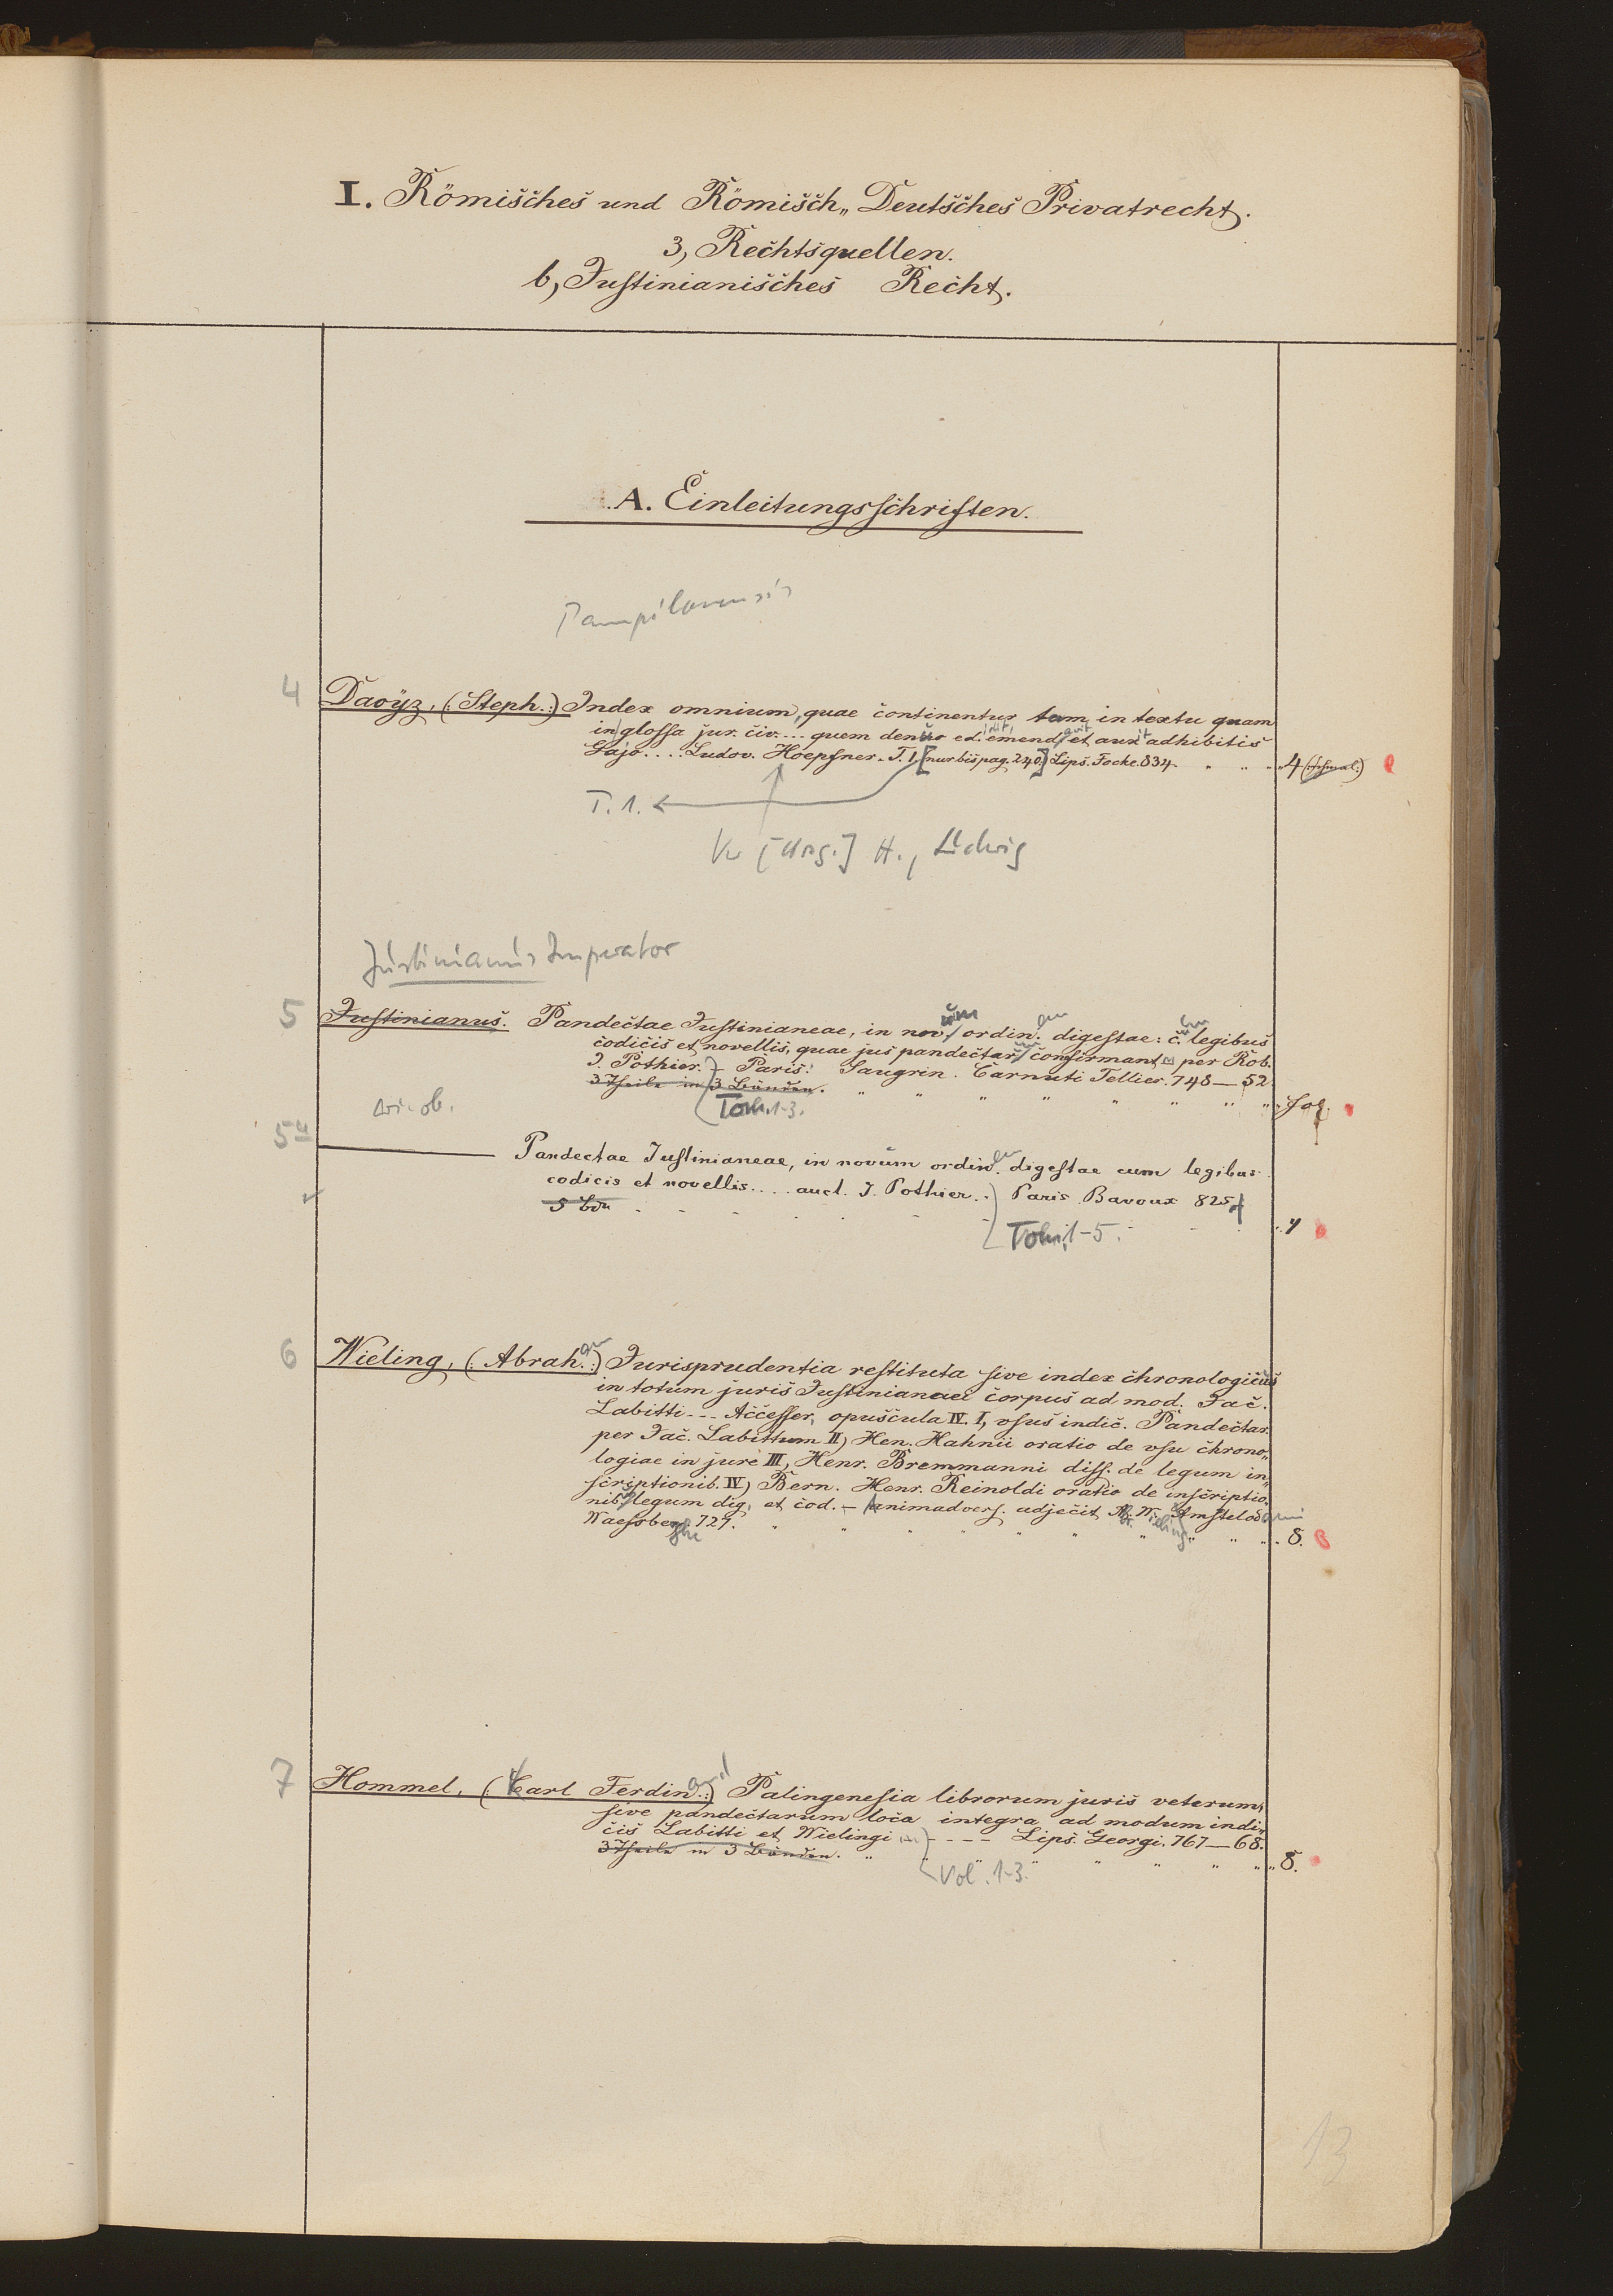 I. Römisches und Römisch„ Deutsches Privatrecht.
3, Rechtsquellen.
b, Justinianisches Recht.
A. Einleitungsschriften.
Pampilonensis
4 Daoÿz, (: Steph.:) Index omnium, quae continentur tam in textu quam
in glossa jur. civ. ... quem denuo ed. emend. et aux. adhibitis
Gajo .... Ludov. Hoepfner. T. 1. [nur bis pag. 240.] Lips. Focke. 834. 4 (schmal.)
T. 1.
Vw [Hrsg.] H., Ludwig
Justinianus Imperator
5 Justinianus. Pandectae Justinianeae, in nov. um ordin. em digestae: c. um legibus
codicis et novellis, quae jus pandectar. um confirmant per Rob.
J. Pothier. – Paris. Saugrin. Carnuti Tellier. 748—52.
3 Theile in 3 Bänden. Fol.
Tom. 1-3.
wie ob.
5a Pandectae Justinianeae, in novum ordin. em digestae cum legibus
codicis et novellis .... auct. J. Pothier .. Paris Bavoux 825
5 Bdn 4
Tom. 1-5.
6 Wieling, (: Abrah. am :) Jurisprudentia restituta sive index chronologicus
in totum juris Justinianaei corpus ad mod. Jac.
Labitti --- Accesser, opuscula IV. I, vsus indic. Pandectar.
per Jac. Labittum II) Hen. Hahnii oratio de vsu chrono„
logiae in jure III, Henr. Bremmanni diss. de legum in„
scriptionib. IV) Bern. Henr. Reinoldi oratio de inscriptio„
nib. legum dig. et cod. – Animadvers. adjecit Ab. Wieling Amstelod ami
Waesber. ghe 727. 8.
7 Hommel, (: Carl Ferdin. and :) Palingenesia librorum juris veterum,
sive pandectarum loca integra ad modum indi„
cis Labitti et Wielingi - - - - Lips. Georgi. 767—68.
3 Theile in 3 Bänden. 8.
Vol. 1-3.
13